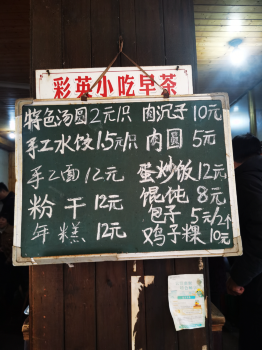 彩英小吃早茶
特色汤圆2元/只
手工水饺1.5元/只
手工面12元
粉干12元
年糕12元
肉沉子10元
肉圆5元
蛋炒饭12元
馄饨8元
包子5元/2个
鸡子粿10元